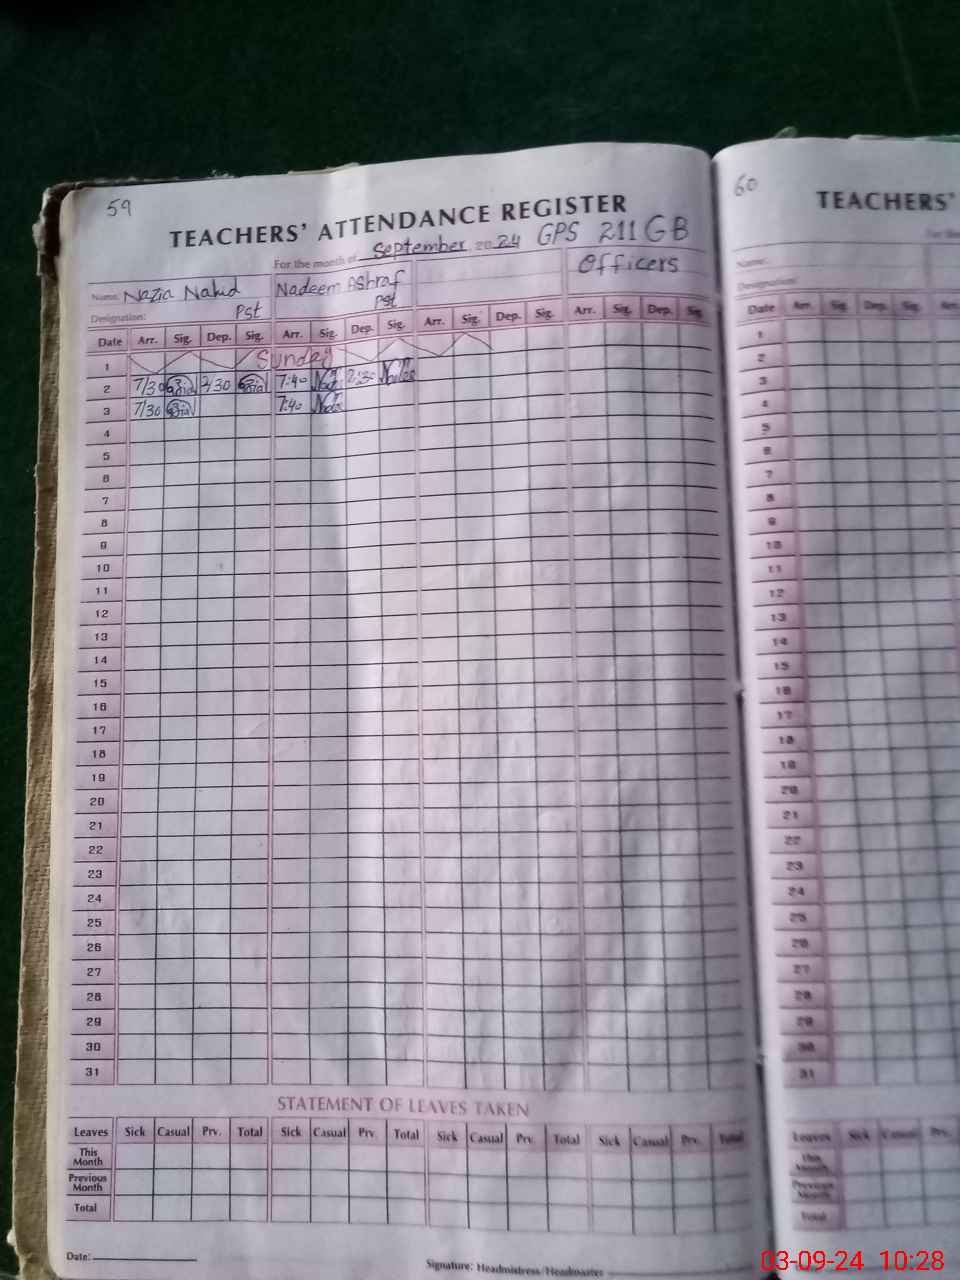 59
TEACHERS' ATTENDANCE REGISTER
For the month of September 2024 GPS 211 GB
Name: Nazia Nahid Nadeem Ashraf Officers
Designation: Pst Pst
Date Arr. Sig. Dep. Sig. Arr. Sig. Dep. Sig. Arr. Sig. Dep. Sig. Arr. Sig. Dep. Sig.
1 Sunday
2 7/30 2/30 7:40 2:30
3 7/30 7:40
4
5
6
7
8
9
10
11
12
13
14
15
16
17
18
19
20
21
22
23
24
25
26
27
28
29
30
31
STATEMENT OF LEAVES TAKEN
Leaves Sick Casual Prv. Total Sick Casual Prv. Total Sick Casual Prv. Total Sick Casual Prv. Total
This Month
Previous Month
Total
Date:
Signature: Headmistress/Headmaster
60
TEACHERS'
For the
Name:
Designation:
Date Arr. Sig. Dep. Sig. Arr.
1
2
3
4
5
6
7
8
9
10
11
12
13
14
15
16
17
18
19
20
21
22
23
24
25
26
27
28
29
30
31
Leaves Sick Casual Prv.
This Month
Previous Month
Total
03-09-24 10:28